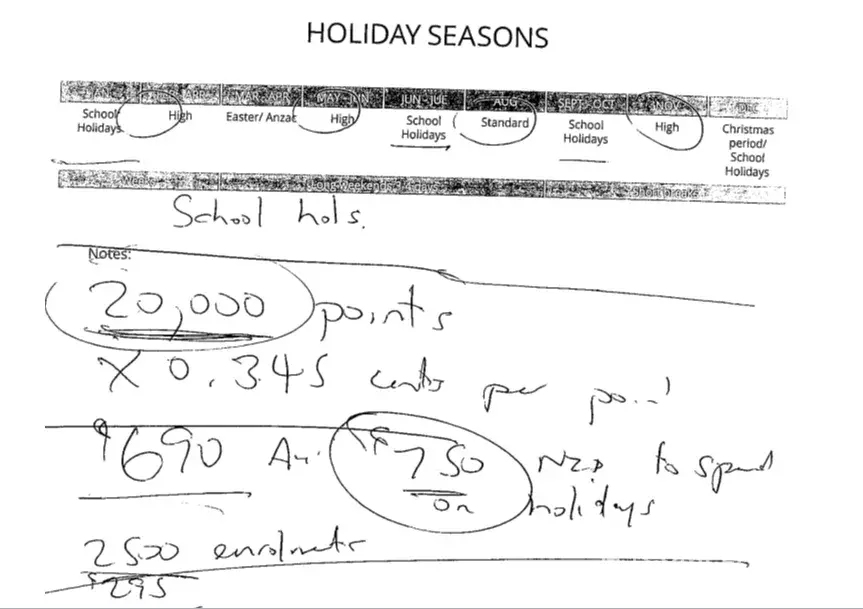 HOLIDAY SEASONS
MAY - JUN JUN - JUL AUG SEPT - OCT NOV DEC
School Holidays High Easter/ Anzac High School Holidays Standard School Holidays High Christmas period/ School Holidays
School hols.
Notes:
20,000 points
X 0.345 cents per point
$690 $750 NZD to spend
on holidays
2500 enrolments
$295